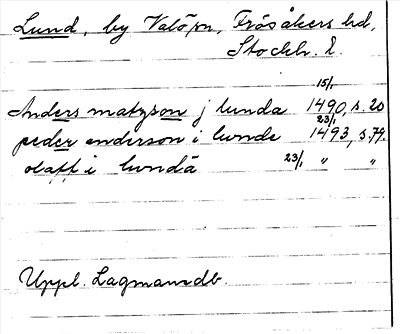 Lund, by Valö sn, Frösåkers hd,
Stockh. l.
Anders matzson j lunda 15/1 1490, s. 20
peder anderson i lunde 23/1 1493, s. 79.
olaff i lundā 23/1 " "
Uppl. Lagmansdb.